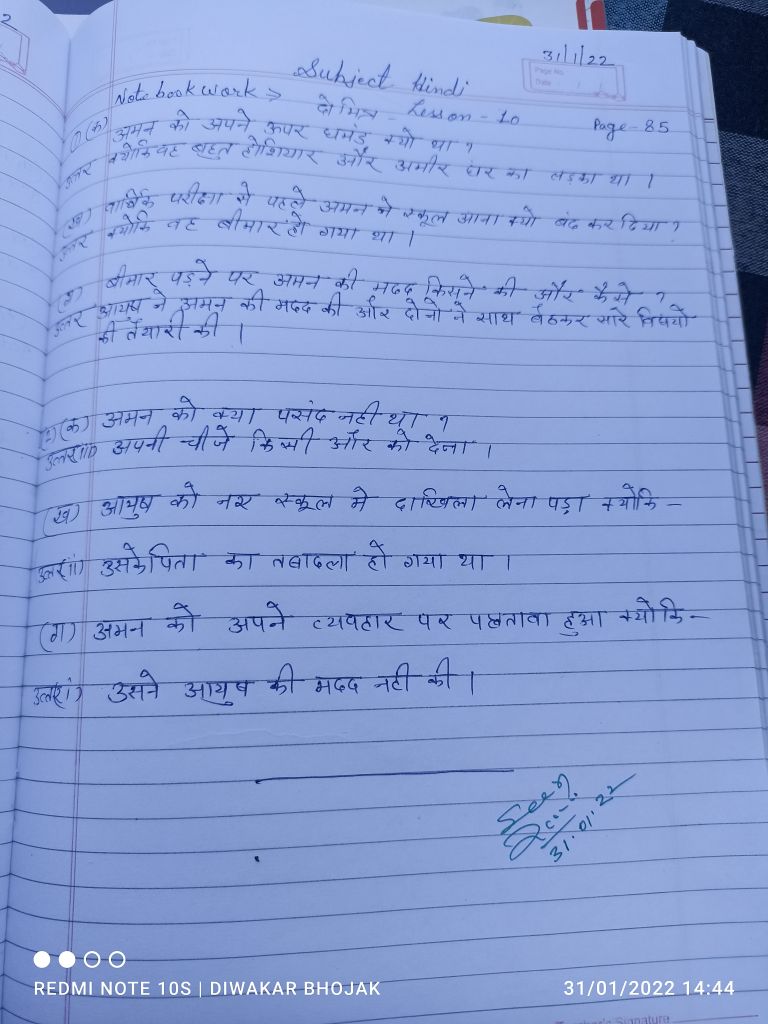 2
31/1/22
Page No.
Date
Subject Hindi
Notebook work →
दो मित्र - Lesson - 10
Page - 85
1) (क) अमन को अपने ऊपर घमंड क्यो था ?
उत्तर क्योकि वह बहुत होशियार और अमीर घर का लड़का था ।
(ख) वार्षिक परीक्षा से पहले अमन ने स्कूल आना क्यो बंद कर दिया ?
उत्तर क्योकि वह बीमार हो गया था ।
(ग) बीमार पड़ने पर अमन की मदद किसने की और कैसे ?
उत्तर आयुष ने अमन की मदद की और दोनो ने साथ बैठकर सारे विषयो
की तैयारी की ।
2) (क) अमन को क्या पसंद नही था ?
उत्तर iii) अपनी चीजे किसी और को देना ।
(ख) आयुष को नए स्कूल मे दाखिला लेना पड़ा क्योकि -
उत्तर ii) उसके पिता का तबादला हो गया था ।
(ग) अमन को अपने व्यवहार पर पछतावा हुआ क्योकि -
उत्तर i) उसने आयुष की मदद नही की ।
Seen
31.01.22
REDMI NOTE 10S | DIWAKAR BHOJAK
31/01/2022 14:44
Teacher's Signature